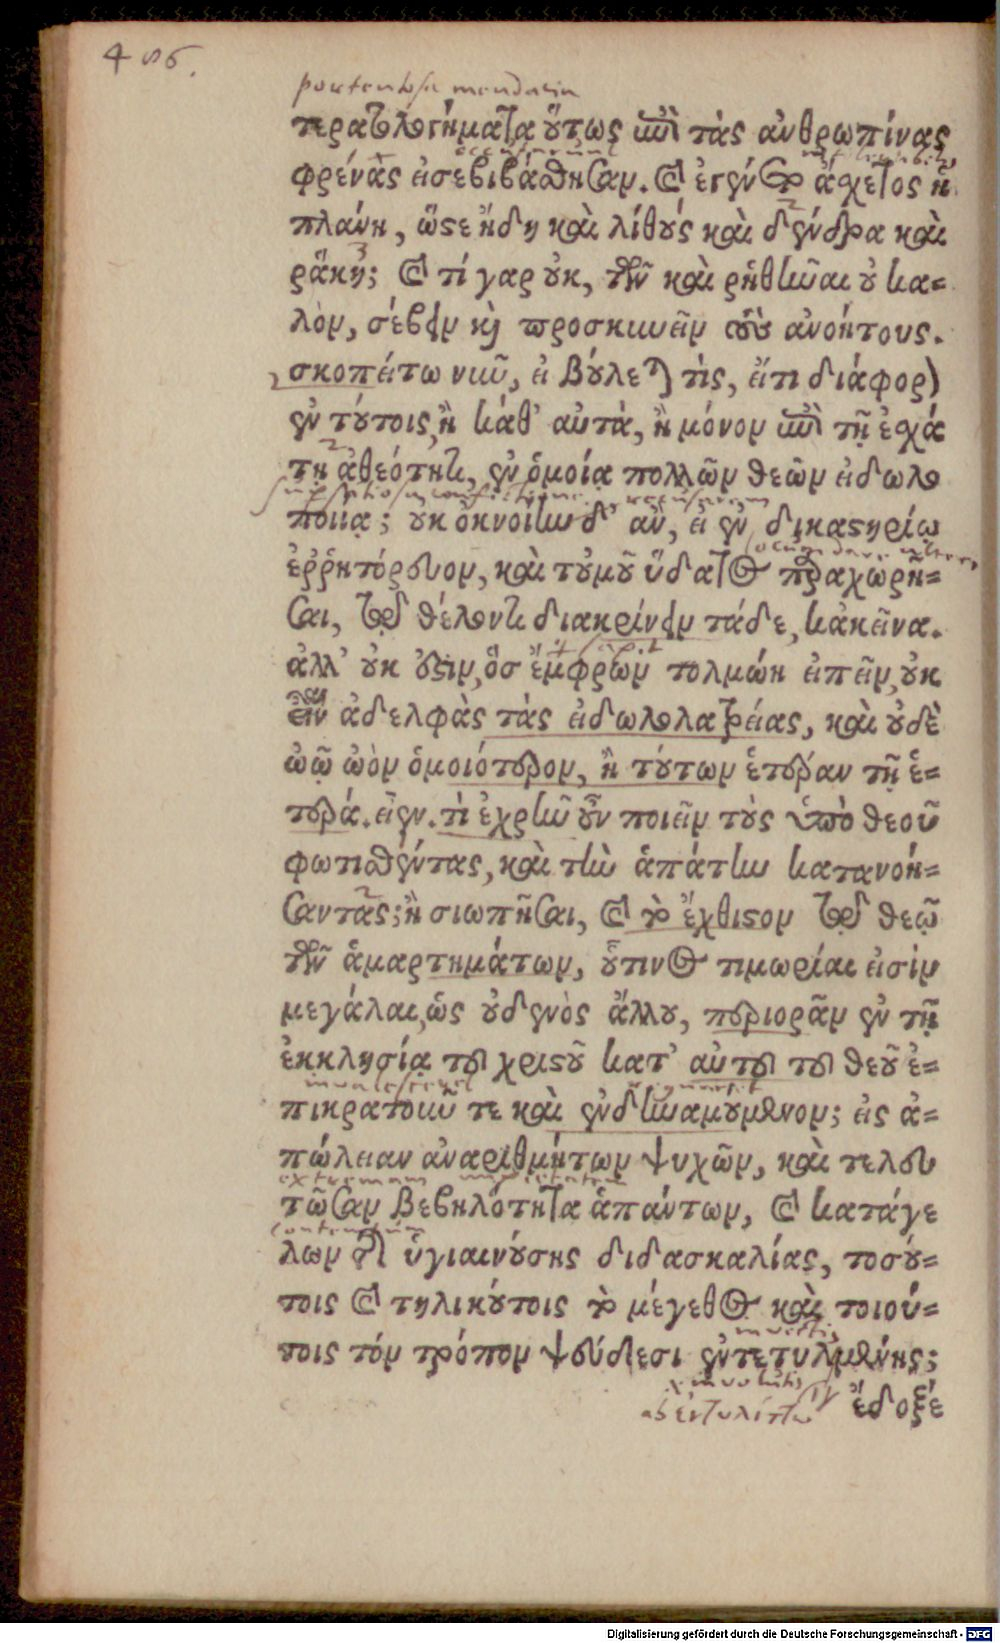 486.
portentosa mendacia
τερατολογήματα ὅτως ἐπὶ τὰς ἀνθρωπίνας
φρένας εἰσεβιβάσθησαν. καὶ ἐγένετο ἄσχετος ἡ
πλάνη, ὥστε ἤδη καὶ λίθους καὶ δένδρα καὶ
ῥάκη; καὶ τί γαρ οὐκ, τῶν καὶ ῥηθῆναι οὐ κα-
λὸν, σέβειν καὶ προσκυνεῖν τοὺς ἀνοήτους.
σκοπείτω νῦν, εἰ βούλεται τὶς, εἴτι διάφορον
ἐν τούτοις, ἢ κάθ' αὑτὰ, ἢ μόνον ἐπὶ τῇ ἐσχά
τῃ ἀθεότητι, ἐν ὁμοίᾳ πολλῶν θεῶν εἰδωλο
ποιίᾳ; οὐκ ὀκνοίην δ' αν, εἰ ἐν δικαστηρίῳ
ἐῤῥητόρευον, καὶ τοὐμοῦ ὕδατος παραχωρῆ-
σαι, τῷ θέλοντι διακρίνειν τάδε, κἀκεῖνα.
ἀλλ' οὐκ ἔστιν, ὅσ ἔμφρων τολμώη εἰπεῖν, οὐκ
ἀδελφὰς τὰς εἰδωλολατρείας, καὶ οὐδὲ
ὠῷ ὠὸν ὁμοιότερον, ἢ τούτων ἑτέραν τῇ ἑ-
τέρᾳ. εἶεν. τὶ ἐχρῆν οὖν ποιεῖν τοὺς ὑπὸ θεοῦ
φωτισθέντας, καὶ τὴν ἀπάτην κατανοή-
σαντας; ἢ σιωπῆσαι, καὶ τὸ ἔχθιστον τῷ θεῷ
τῶν ἁμαρτημάτων, οὗτινος τιμωρίαι εἰσὶν
μεγάλαι, ὡς οὐδενὸς ἄλλου, περιορᾶν ἐν τῇ
ἐκκλησίᾳ τοῦ χριστοῦ κατ' αὐτοῦ τοῦ θεοῦ ἐ-
πικρατοῦν τε καὶ ἐνδυναμούμενον; εἰς ἀ-
πώλειαν ἀναριθμήτων ψυχῶν, καὶ τελευ
τῶσαν βεβηλότητα ἁπάντων, καὶ κατάγε
λων τῆς ὑγιαινούσης διδασκαλίας, τοσού-
τοις καὶ τηλικούτοις τὸ μέγεθος καὶ τοιού-
τοις τόν τρόπον ψεύδεσι ἐντετυλμένης;
inuolutis
ab ἐντυλίττω ἔδοξέ
Digitalisierung gefördert durch die Deutsche Forschungsgemeinschaft - DFG